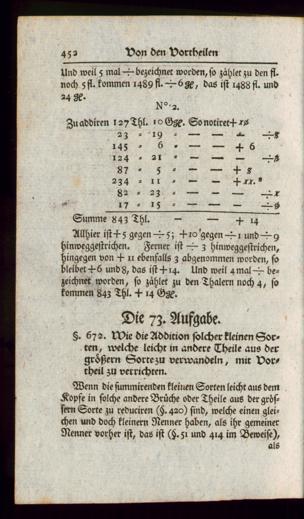 452 Von den Vortheilen
Und weil 5 mal ÷ bezeichnet worden, so zählet zu den fl.
noch 5 fl. kommen 1489 fl. ÷ 6 ge, das ist 1488 fl. und
24 ge.
N° 2.
Zu addiren 127 Thl. 10 Gge. So notiret +
23 - 19 - — — ÷ 8
145 - 6 - — — + 6
124 - 21 - — — ÷
87 - 5 - — — + 8
234 - 11 - — —
82 - 23 - — —
17 - 15 - — —
Summe 843 Thl. — — + 14
Allhier ist + 5 gegen ÷ 5; + 10 gegen ÷ 1 und ÷ 9
hinweggestrichen. Ferner ist ÷ 3 hinweggestrichen,
hingegen von + 11 ebenfalls 3 abgenommen worden, so
bleibet + 6 und 8, das ist + 14. Und weil 4 mal ÷ be-
zeichnet worden, so zählet zu den Thalern noch 4, so
kommen 843 Thl. + 14 Gge.
Die 73. Aufgabe.
§. 672. Wie die Addition solcher kleinen Sor-
ten, welche leicht in andere Theile aus der
größern Sorte zu verwandeln, mit Vor-
theil zu verrichten.
Wenn die summirenden kleinen Sorten leicht aus dem
Kopfe in solche andere Brüche oder Theile aus der grös-
sern Sorte zu reduciren (§. 420) sind, welche einen glei-
chen und doch kleinern Nenner haben, als ihr gemeiner
Nenner vorher ist, das ist (§. 51 und 414 im Beweise),
als